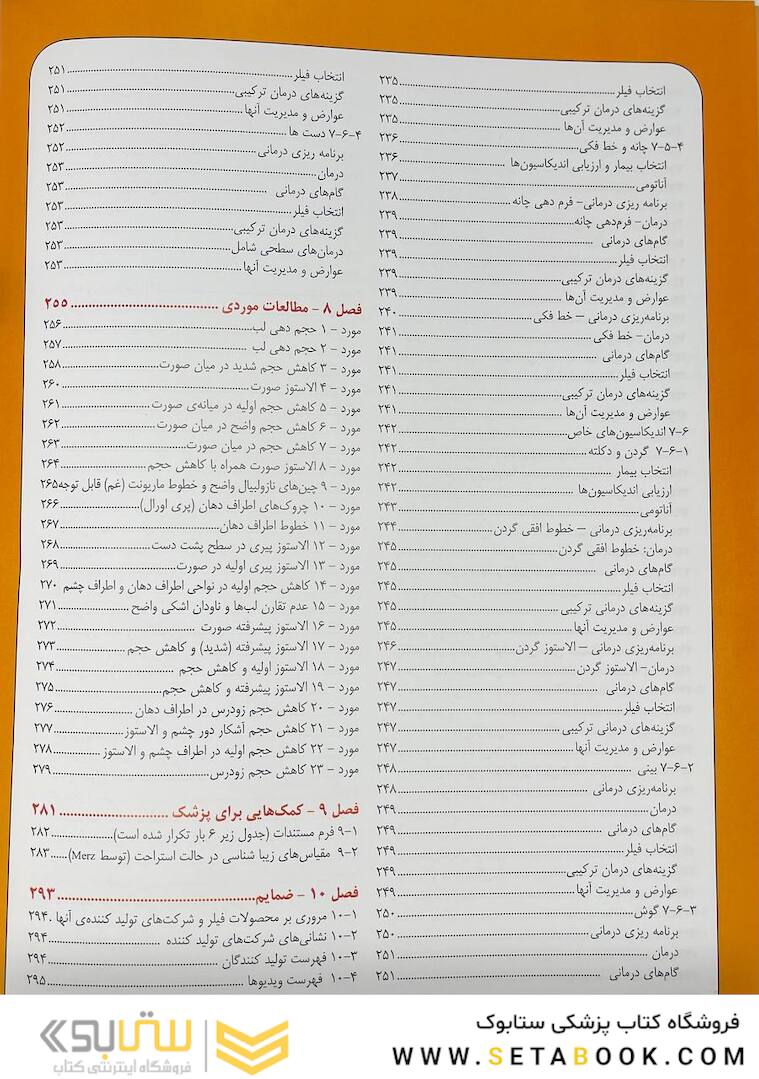 انتخاب فیلر ۲۳۵
گزینه‌های درمان ترکیبی ۲۳۵
عوارض و مدیریت آن‌ها ۲۳۵
۷-۵-۴ چانه و خط فکی ۲۳۶
انتخاب بیمار و ارزیابی اندیکاسیون‌ها ۲۳۶
آناتومی ۲۳۷
برنامه ریزی درمانی- فرم دهی چانه ۲۳۸
درمان- فرم‌دهی چانه ۲۳۹
گام‌های درمانی ۲۳۹
انتخاب فیلر ۲۳۹
گزینه‌های درمان ترکیبی ۲۳۹
عوارض و مدیریت آن‌ها ۲۳۹
برنامه‌ریزی درمانی – خط فکی ۲۴۰
درمان- خط فکی ۲۴۱
گام‌های درمانی ۲۴۱
انتخاب فیلر ۲۴۱
گزینه‌های درمان ترکیبی ۲۴۱
عوارض و مدیریت آن‌ها ۲۴۱
۷-۶ اندیکاسیون‌های خاص ۲۴۲
۷-۶-۱ گردن و دکلته ۲۴۲
انتخاب بیمار ۲۴۲
ارزیابی اندیکاسیون‌ها ۲۴۲
آناتومی ۲۴۳
برنامه‌ریزی درمانی – خطوط افقی گردن ۲۴۴
درمان: خطوط افقی گردن ۲۴۵
گام‌های درمانی ۲۴۵
انتخاب فیلر ۲۴۵
گزینه‌های درمانی ترکیبی ۲۴۵
عوارض و مدیریت آنها ۲۴۵
برنامه‌ریزی درمانی – الاستوز گردن ۲۴۶
درمان- الاستوز گردن ۲۴۷
گام‌های درمانی ۲۴۷
انتخاب فیلر ۲۴۷
گزینه‌های درمانی ترکیبی ۲۴۷
عوارض و مدیریت آنها ۲۴۷
۷-۶-۲ بینی ۲۴۸
برنامه‌ریزی درمانی ۲۴۸
درمان ۲۴۹
گام‌های درمانی ۲۴۹
انتخاب فیلر ۲۴۹
گزینه‌های درمان ترکیبی ۲۴۹
عوارض و مدیریت آنها ۲۴۹
۷-۶-۳ گوش ۲۵۰
برنامه ریزی درمانی ۲۵۰
درمان ۲۵۱
گام‌های درمانی ۲۵۱
انتخاب فیلر ۲۵۱
گزینه‌های درمان ترکیبی ۲۵۱
عوارض و مدیریت آنها ۲۵۱
۷-۶-۴ دست ها ۲۵۲
برنامه ریزی درمانی ۲۵۲
درمان ۲۵۳
گام‌های درمانی ۲۵۳
انتخاب فیلر ۲۵۳
گزینه‌های درمان ترکیبی ۲۵۳
درمان‌های سطحی شامل ۲۵۳
عوارض و مدیریت آنها ۲۵۳
فصل ۸ - مطالعات موردی ۲۵۵
مورد - ۱ حجم دهی لب ۲۵۶
مورد - ۲ حجم دهی لب ۲۵۷
مورد - ۳ کاهش حجم شدید در میان صورت ۲۵۸
مورد - ۴ الاستوز صورت ۲۶۰
مورد - ۵ کاهش حجم اولیه در میانه‌ی صورت ۲۶۱
مورد - ۶ کاهش حجم واضح در میان صورت ۲۶۲
مورد - ۷ کاهش حجم در میان صورت ۲۶۳
مورد - ۸ الاستوز صورت همراه با کاهش حجم ۲۶۴
مورد - ۹ چین‌های نازولبیال واضح و خطوط ماریونت (غم) قابل توجه ۲۶۵
مورد - ۱۰ چروک‌های اطراف دهان (پری اورال) ۲۶۶
مورد - ۱۱ خطوط اطراف دهان ۲۶۷
مورد - ۱۲ الاستوز پیری در سطح پشت دست ۲۶۸
مورد - ۱۳ الاستوز پیری اولیه در صورت ۲۶۹
مورد - ۱۴ کاهش حجم اولیه در نواحی اطراف دهان و اطراف چشم ۲۷۰
مورد - ۱۵ عدم تقارن لب‌ها و ناودان اشکی واضح ۲۷۱
مورد - ۱۶ الاستوز پیشرفته صورت ۲۷۲
مورد - ۱۷ الاستوز پیشرفته (شدید) و کاهش حجم ۲۷۳
مورد - ۱۸ الاستوز اولیه و کاهش حجم ۲۷۴
مورد - ۱۹ الاستوز پیشرفته و کاهش حجم ۲۷۵
مورد - ۲۰ کاهش حجم زودرس در اطراف دهان ۲۷۶
مورد - ۲۱ کاهش حجم آشکار دور چشم و الاستوز ۲۷۷
مورد - ۲۲ کاهش حجم اولیه در اطراف چشم و الاستوز ۲۷۸
مورد - ۲۳ کاهش حجم زودرس ۲۷۹
فصل ۹ - کمک‌هایی برای پزشک ۲۸۱
۹-۱ فرم مستندات (جدول زیر ۶ بار تکرار شده است) ۲۸۲
۹-۲ مقیاس‌های زیبا شناسی در حالت استراحت (توسط Merz) ۲۸۳
فصل ۱۰ - ضمایم ۲۹۳
۱۰-۱ مروری بر محصولات فیلر و شرکت‌های تولید کننده‌ی آنها ۲۹۴
۱۰-۲ نشانی‌های شرکت‌های تولید کننده ۲۹۴
۱۰-۳ فهرست تولید کنندگان ۲۹۴
۱۰-۴ فهرست ویدیوها ۲۹۵
فروشگاه کتاب پزشکی ستابوک
WWW.SETABOOK.COM
ستابوک
فروشگاه اینترنتی کتاب